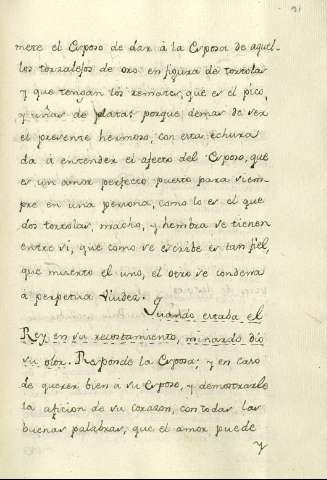 21
mete el Esposo de dar à la Esposa de aquel-
los tortalejos de oro en figura de tortolas
y que tengan los remates, que es el pico,
y uñas de plata; porque demas de ser
el presente hermoso, con esta echura
da à entender el afecto del Esposo, que
es un amor perfecto puesto para siem-
pre en una persona, como lo es el que
dos tortolas, macho, y hembra se tienen
entre si, que como se escribe es tan fiel,
que muerto el uno, el otro se condena
à perpetua viudez.
Quando estaba el
Rey en su recostamiento, mi nardo dió
su olor. Responde la Esposa; y en caso
de querer bien a su Esposo, y demostrarle
la aficion de su corazon, con todas las
buenas palabras, que el amor puede
y